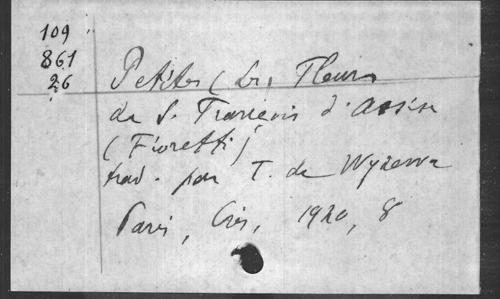 109
861
26
Petites (Les Fleurs
de S. François d'Assise
(Fioretti)
trad. par T. de Wyzewa
Paris, Crès, 1920, 8